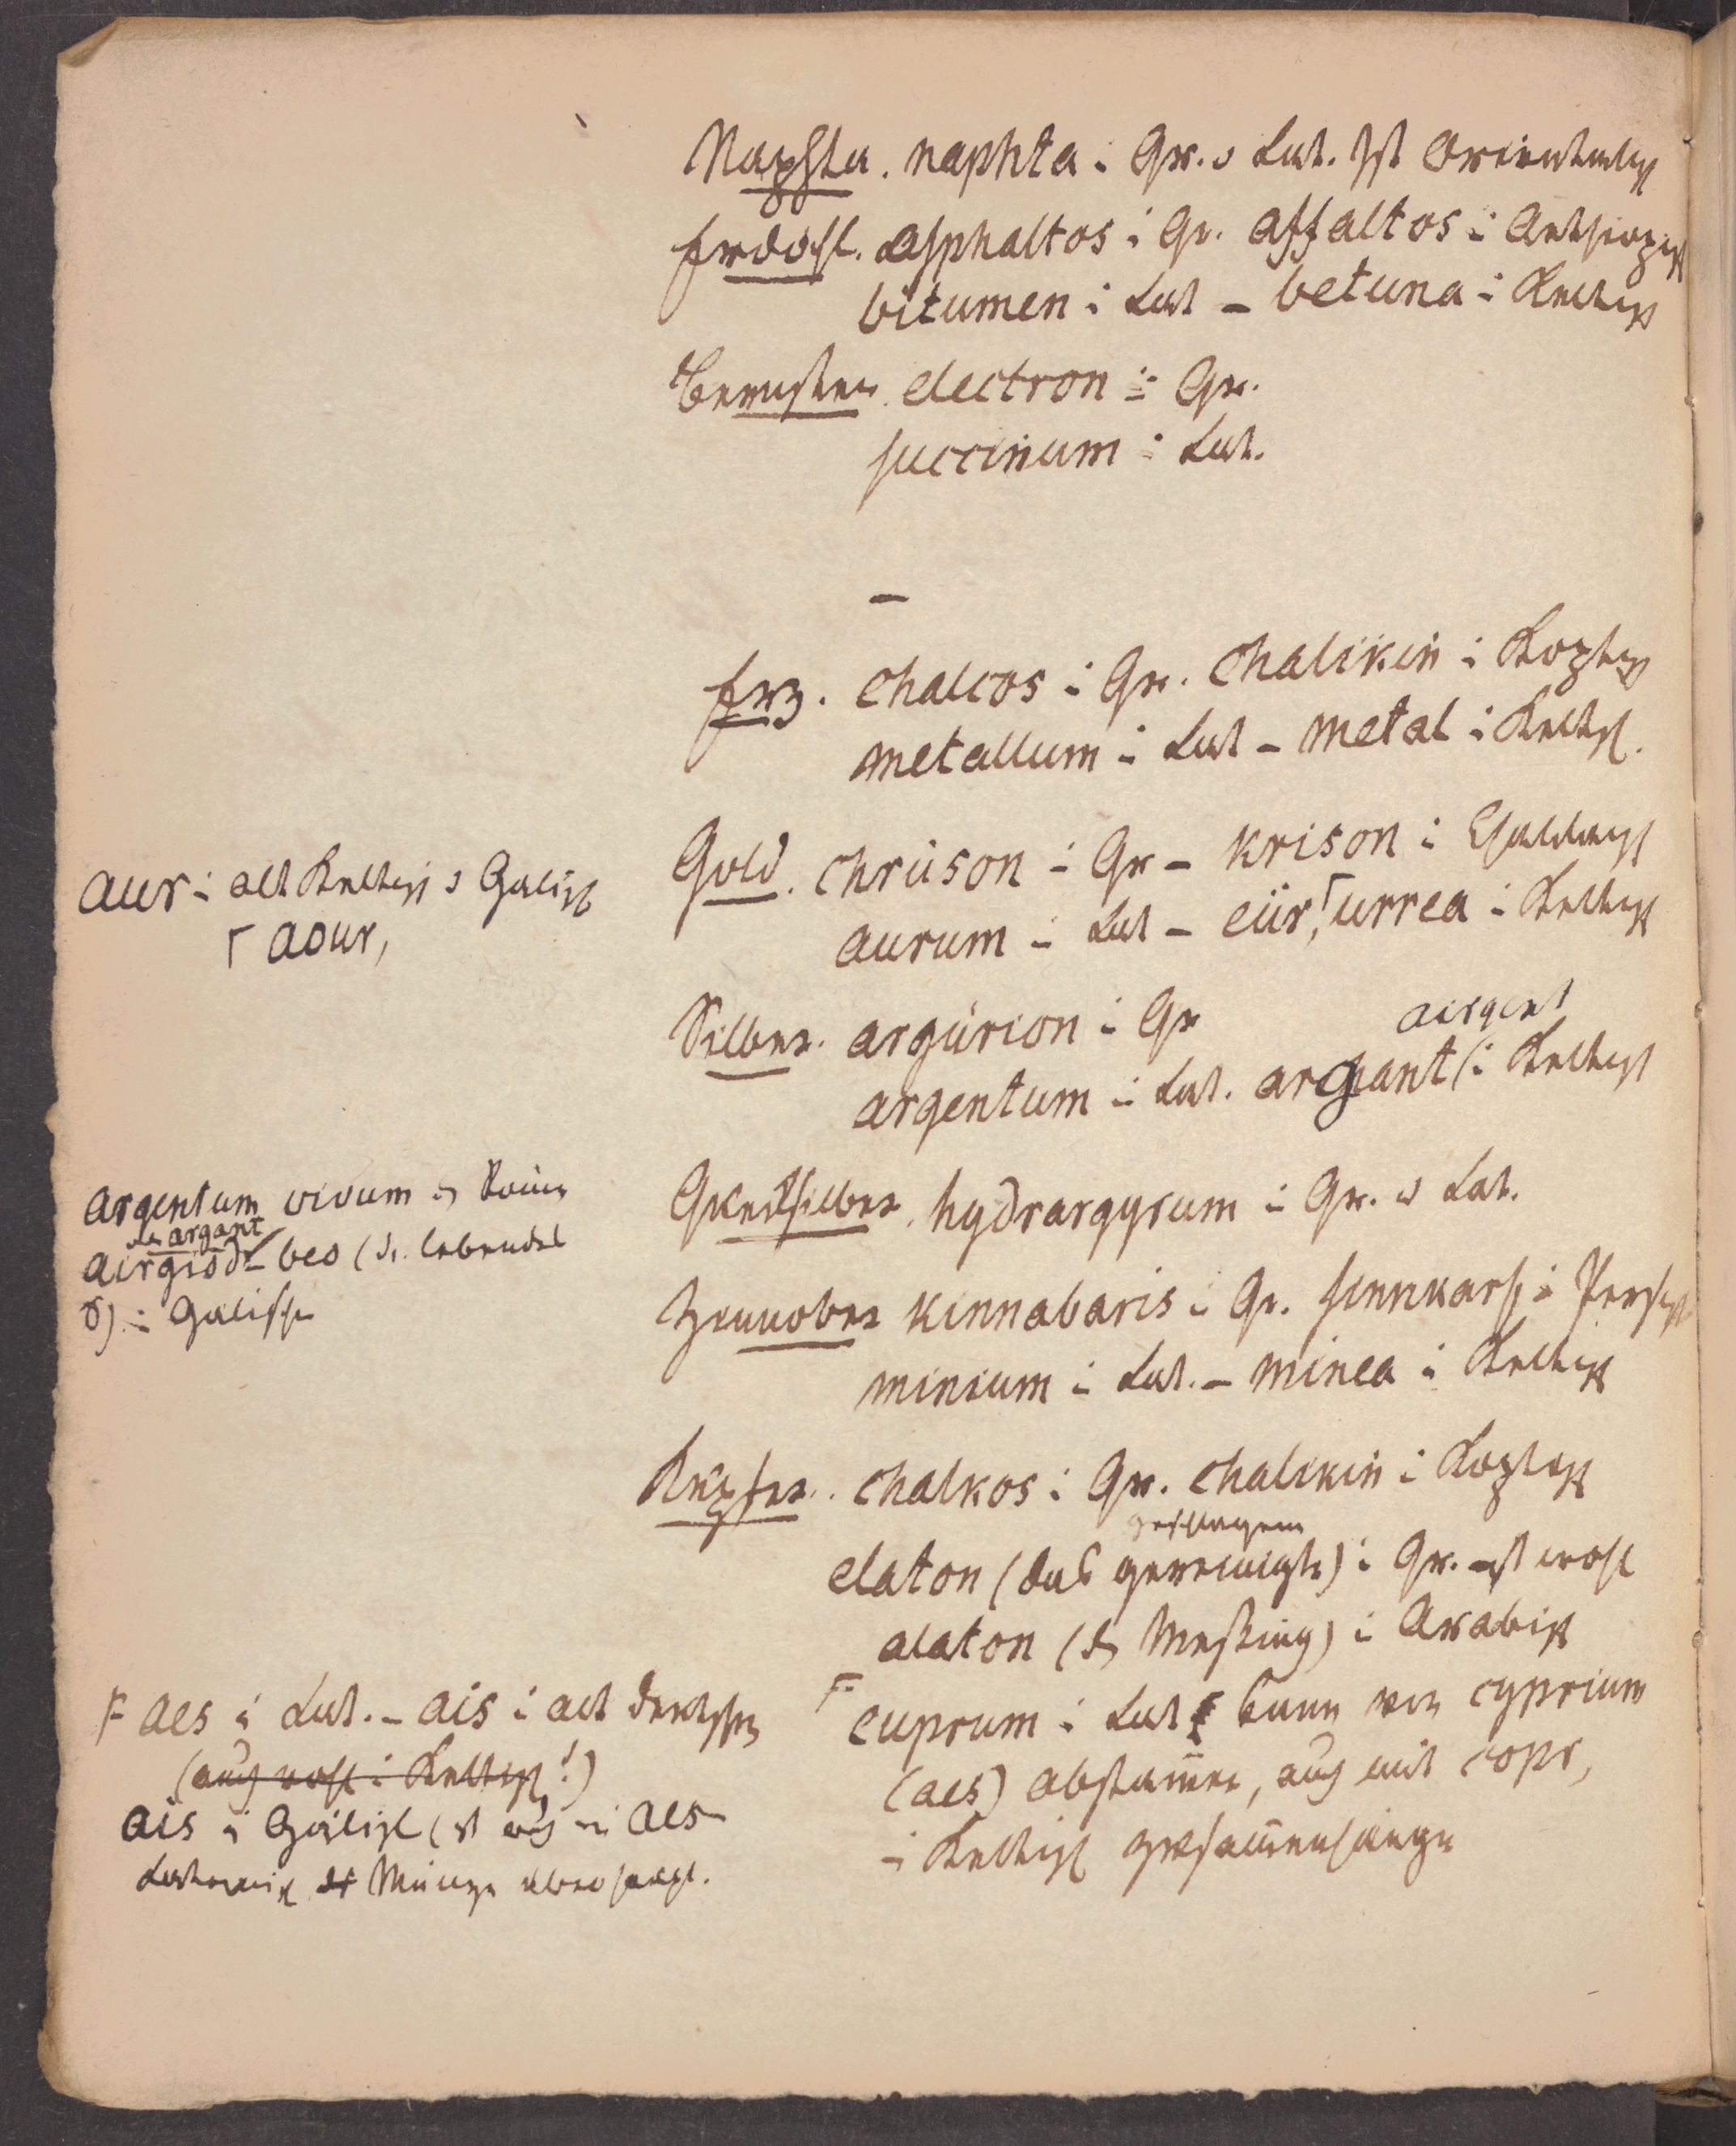 Naphta. naphta i Gr. u Lat. Ist Orientalisch
Erdöhl. asphaltos i Gr. affaltos i Aethiopisch
bitumen i Lat – betuna i Keltisch
Bernstein electron i Gr.
succinum i Lat.
–
Erz. chalcos i Gr. chalikin i Koptisch
metallum i Lat – metal i Keltisch.
Gold. chrüson i Gr – krison i Chaldaisch
aurum i Lat – eür, ⌈ urrea i Keltisch
aur i alt Keltisch u Galisch
⌈ aour,
Silber. argürion i Gr
airgent
argentum i Lat. argant (i Keltisch
Quecksilber. hydrargyrum i Gr. u Lat.
argentum vivum
argant
airgiod – beo (d. lebendes
S) i Galischen
Zinnober kinnabaris i Gr. i Persisch
minium i Lat. – minea i Keltisch
Kupfer. chalkos i Gr. chalikin i Koptisch
geschlagene
elaton (das gereinigte) i Gr. ist wohl
alaton (d Messing) i Arabisch
F cuprum i Lat kann von cyprium
(aes) abstammen, auch mit copr,
i Keltisch zusammenhängen
F aes i Lat. – ais i alt deutschen
(auch wohl i Keltisch!)
ais i Gälisch (ist auch aes
Lateinisch Münze übersezt.